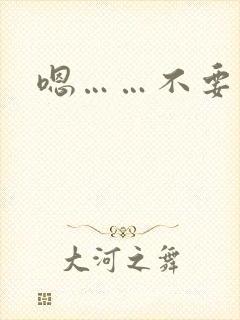 嗯……不要
大河之舞